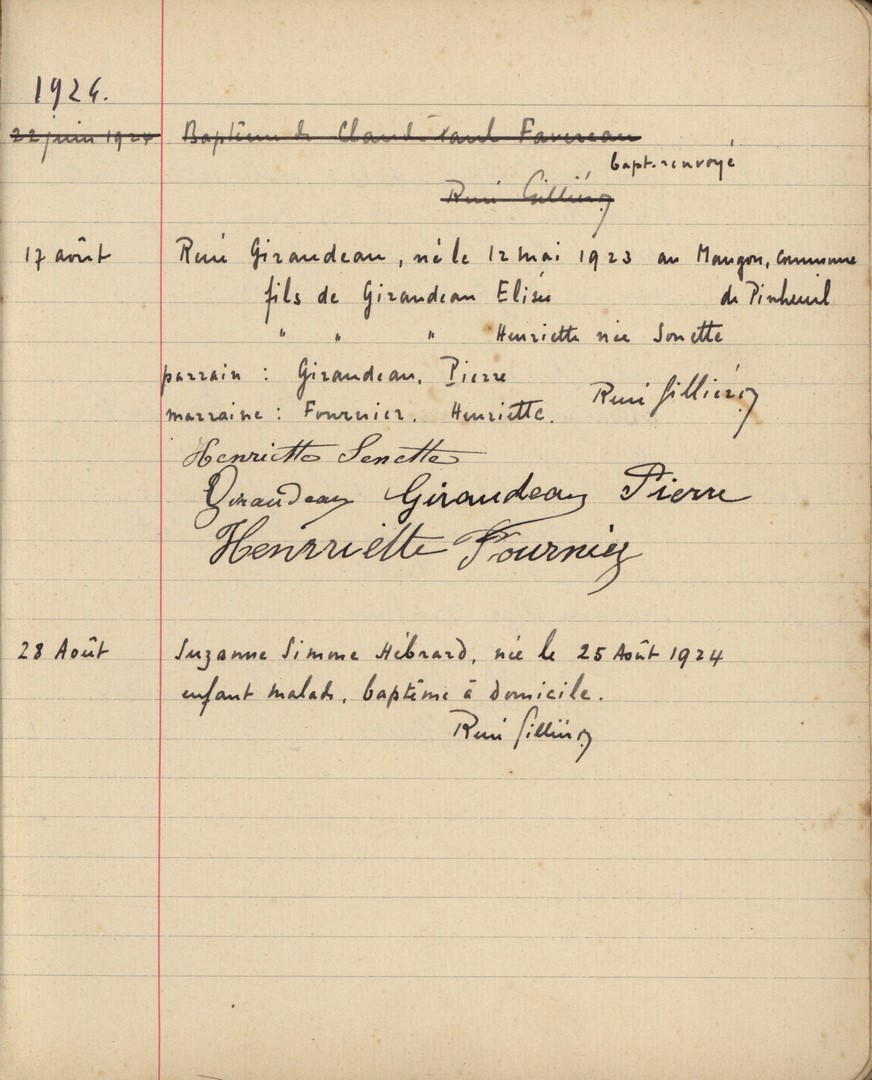 1924.
22 juin 1924 Baptême de Claude Paul Favereau
bapt. renvoyé
René Gilliéron
17 août René Giraudeau, né le 12 mai 1923 au Mangon, commune
fils de Giraudeau Elisée de Pinheuil
" " " Henriette née Sonette
parrain : Giraudeau, Pierre
marraine : Fournier, Henriette. René Gilliéron
Henriette Senette
Giraudeau Giraudeau Pierre
Henriette Fournier
28 Août Suzanne Simone Hébrard, née le 25 Août 1924
enfant malade, baptême à domicile.
René Gilliéron